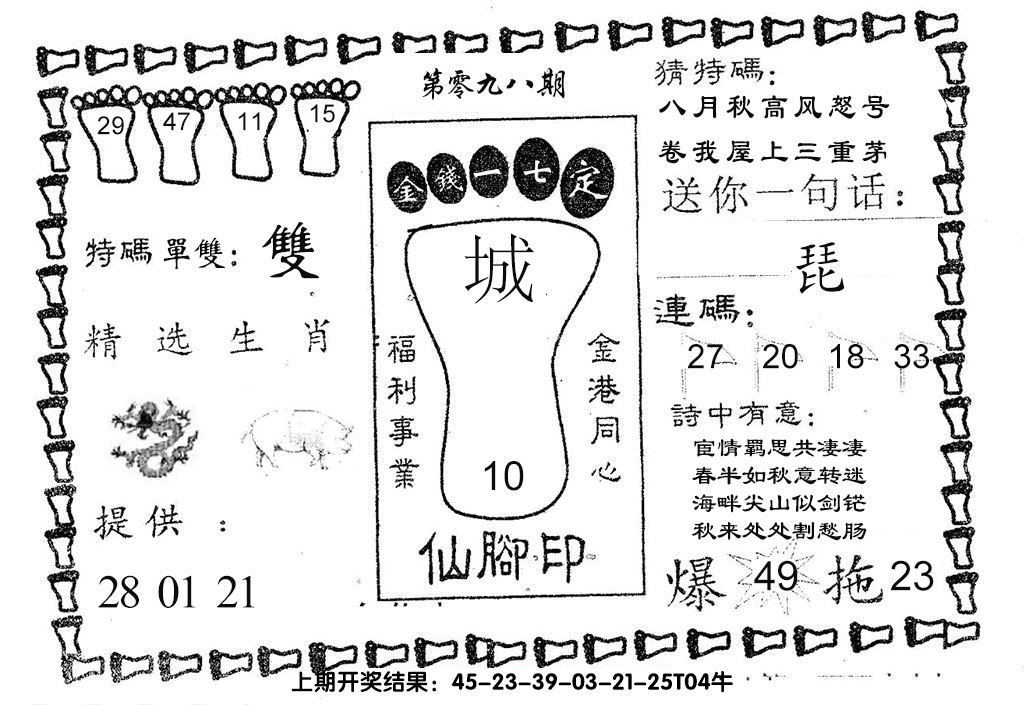 第零九八期
29 47 11 15
特碼單雙：雙
精选生肖
提供：
28 01 21
金錢一七定
城
福利事業
金港同心
10
仙腳印
猜特碼：
八月秋高风怒号
卷我屋上三重茅
送你一句话：
琵
連碼：
27 20 18 33
詩中有意：
宦情羁思共凄凄
春半如秋意转迷
海畔尖山似剑铓
秋来处处割愁肠
爆 49 拖 23
上期开奖结果：45-23-39-03-21-25T04牛